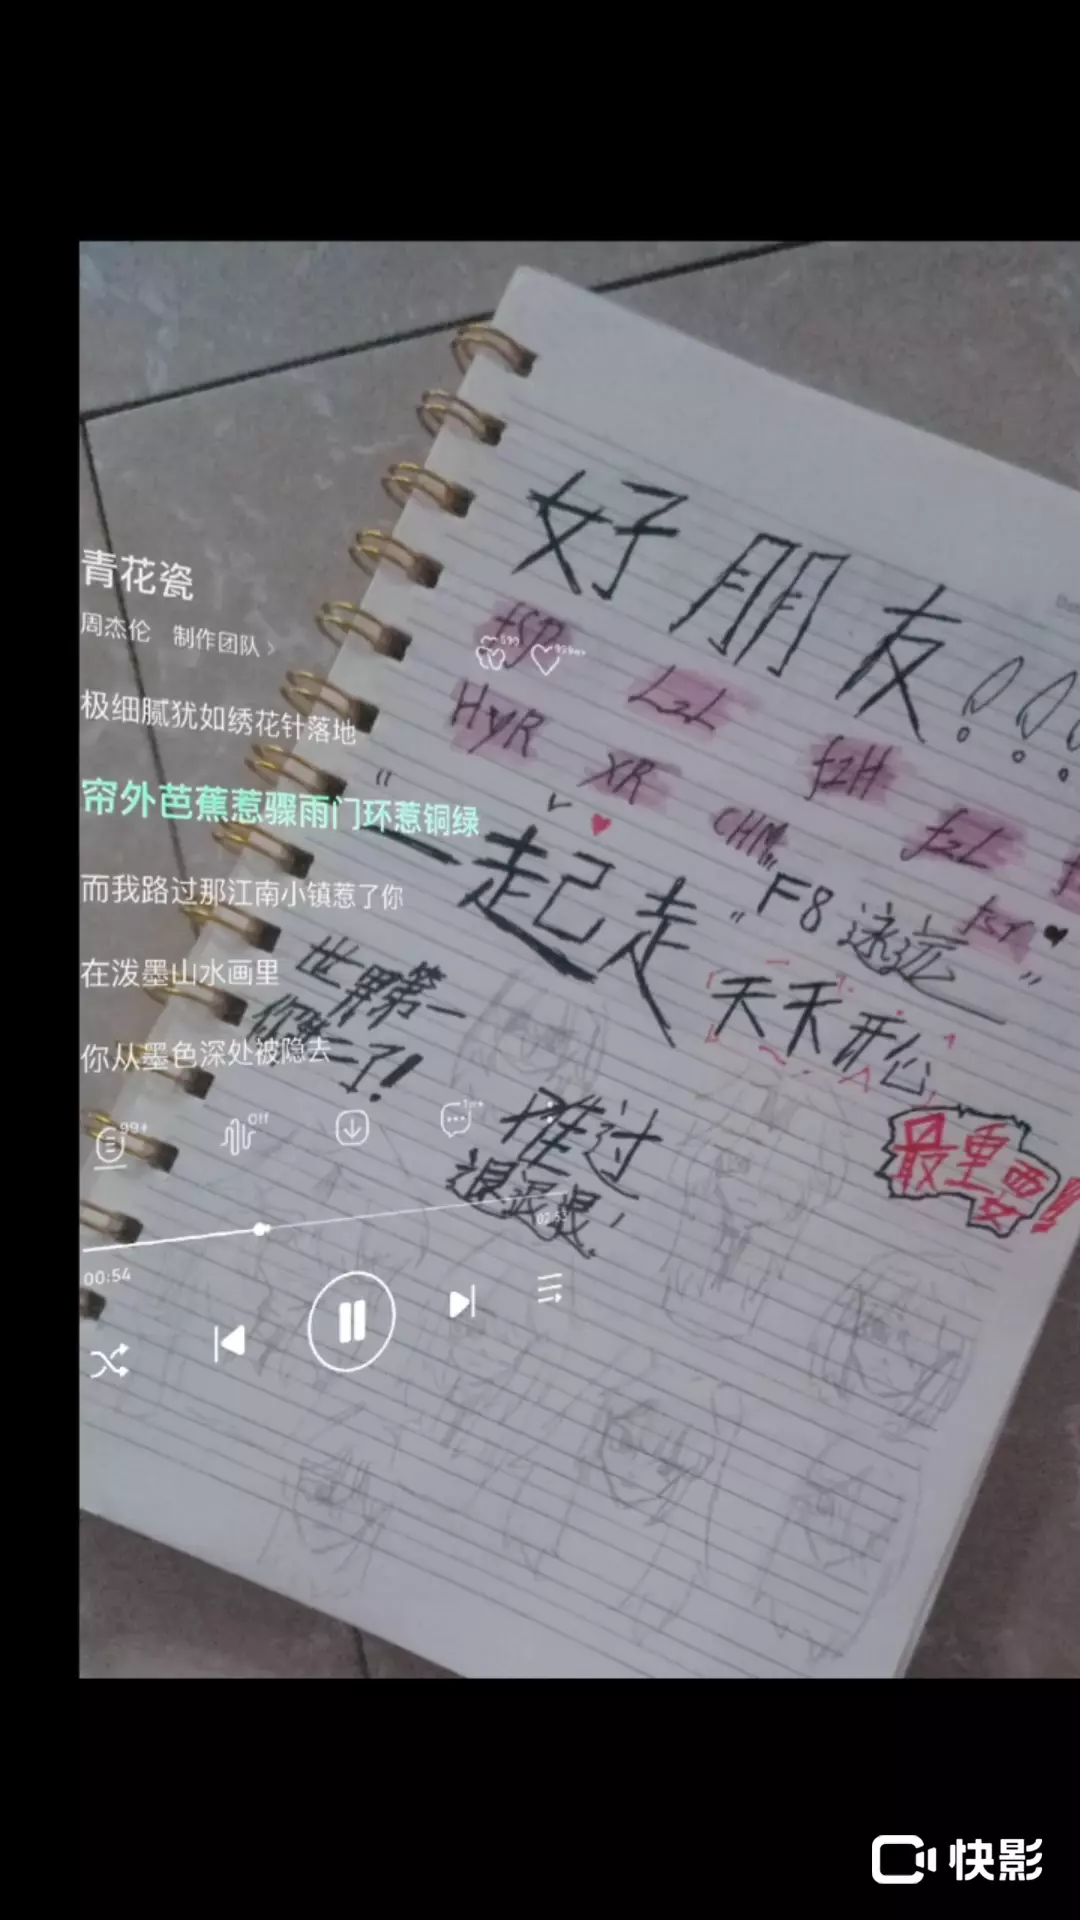 好朋友!!!
LzL
HyR
fzH
XR
CHM
fzL
"一起走"
"F8永远"
天天开心
世界第一
你第二了!
难过
退退退!
最重要!
青花瓷
周杰伦 制作团队 >
999+
极细腻犹如绣花针落地
帘外芭蕉惹骤雨门环惹铜绿
而我路过那江南小镇惹了你
在泼墨山水画里
你从墨色深处被隐去
99+
Off
1w+
00:54
快影